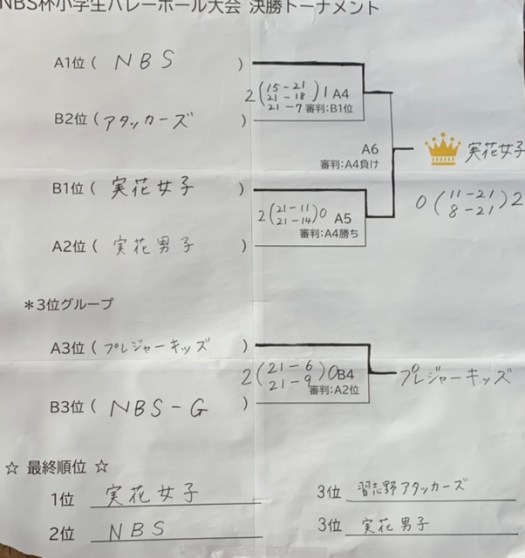 NBS杯小学生バレーボール大会 決勝トーナメント
A1位 ( NBS )
2 ( 15-21 21-18 21-7 ) 1 A4
審判:B1位
B2位 ( アタッカーズ )
A6
審判:A4負け
実花女子
0 ( 11-21 8-21 ) 2
B1位 ( 実花女子 )
2 ( 21-11 21-14 ) 0 A5
審判:A4勝ち
A2位 ( 実花男子 )
*3位グループ
A3位 ( プレジャーキッズ )
2 ( 21-6 21-9 ) 0 B4
審判:A2位
プレジャーキッズ
B3位 ( NBS-G )
☆ 最終順位 ☆
1位 実花女子
3位 習志野アタッカーズ
2位 NBS
3位 実花男子